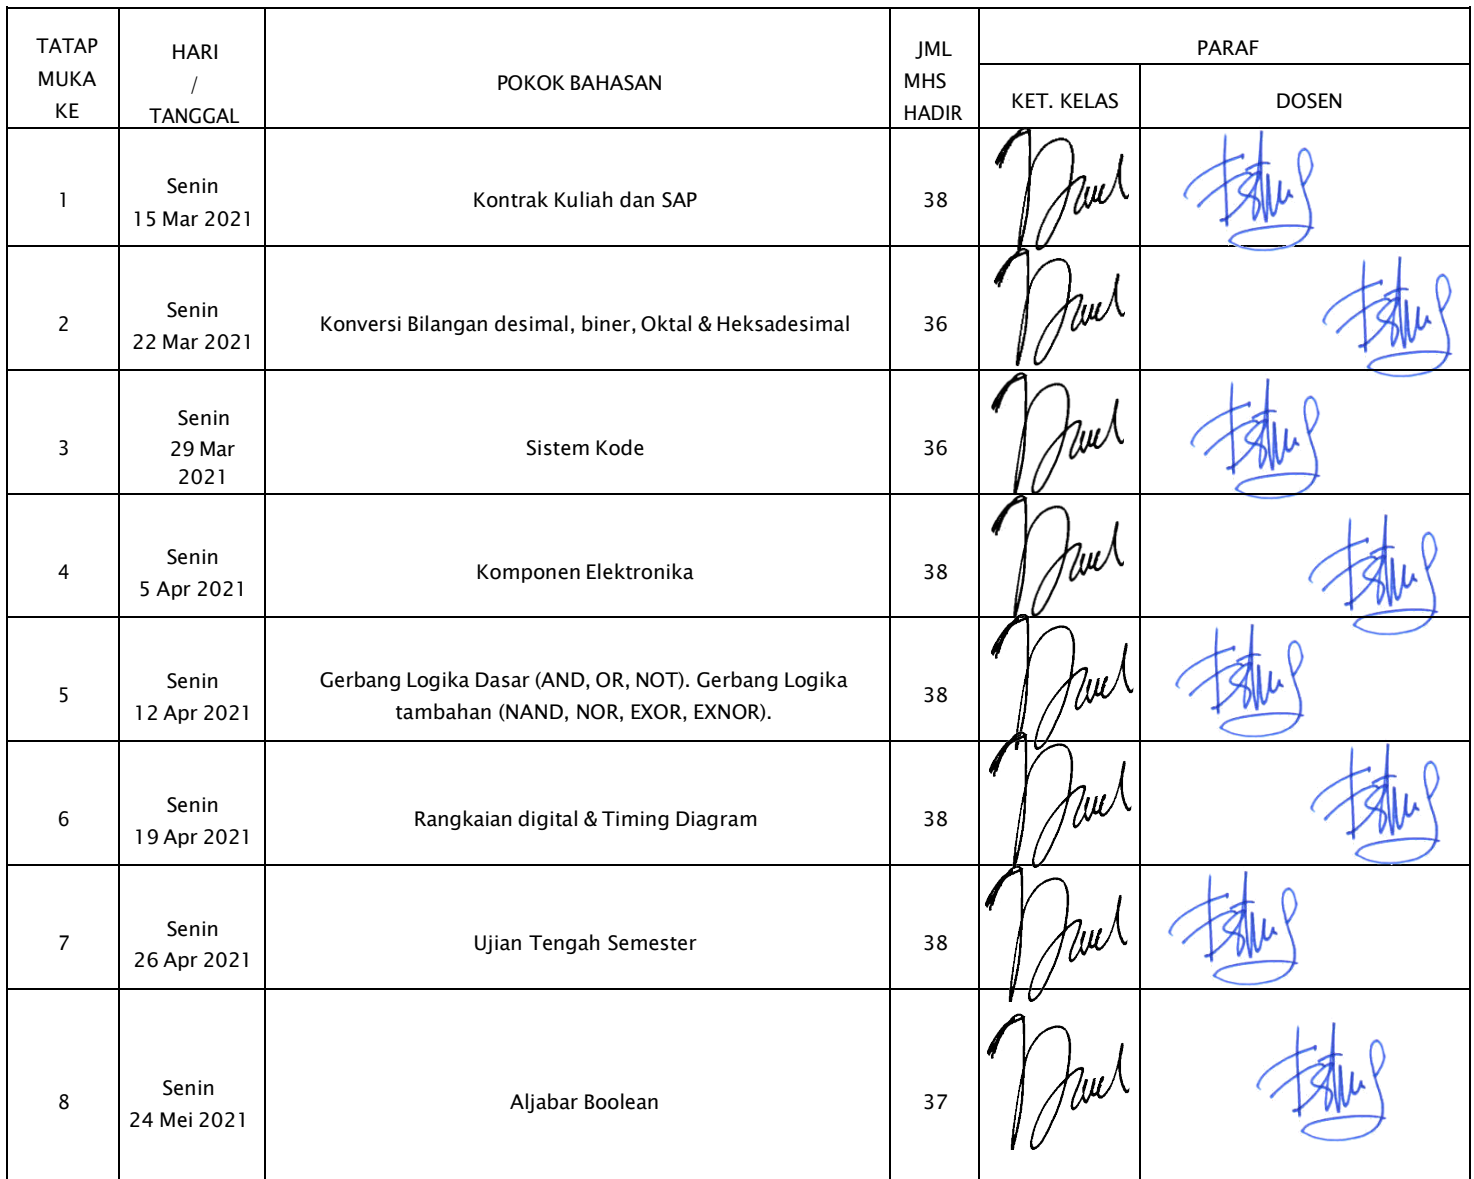 TATAP
MUKA
KE
HARI
/
TANGGAL
POKOK BAHASAN
JML
MHS
HADIR
PARAF
KET. KELAS
DOSEN
1
Senin
15 Mar 2021
Kontrak Kuliah dan SAP
38
2
Senin
22 Mar 2021
Konversi Bilangan desimal, biner, Oktal & Heksadesimal
36
3
Senin
29 Mar
2021
Sistem Kode
36
4
Senin
5 Apr 2021
Komponen Elektronika
38
5
Senin
12 Apr 2021
Gerbang Logika Dasar (AND, OR, NOT). Gerbang Logika
tambahan (NAND, NOR, EXOR, EXNOR).
38
6
Senin
19 Apr 2021
Rangkaian digital & Timing Diagram
38
7
Senin
26 Apr 2021
Ujian Tengah Semester
38
8
Senin
24 Mei 2021
Aljabar Boolean
37